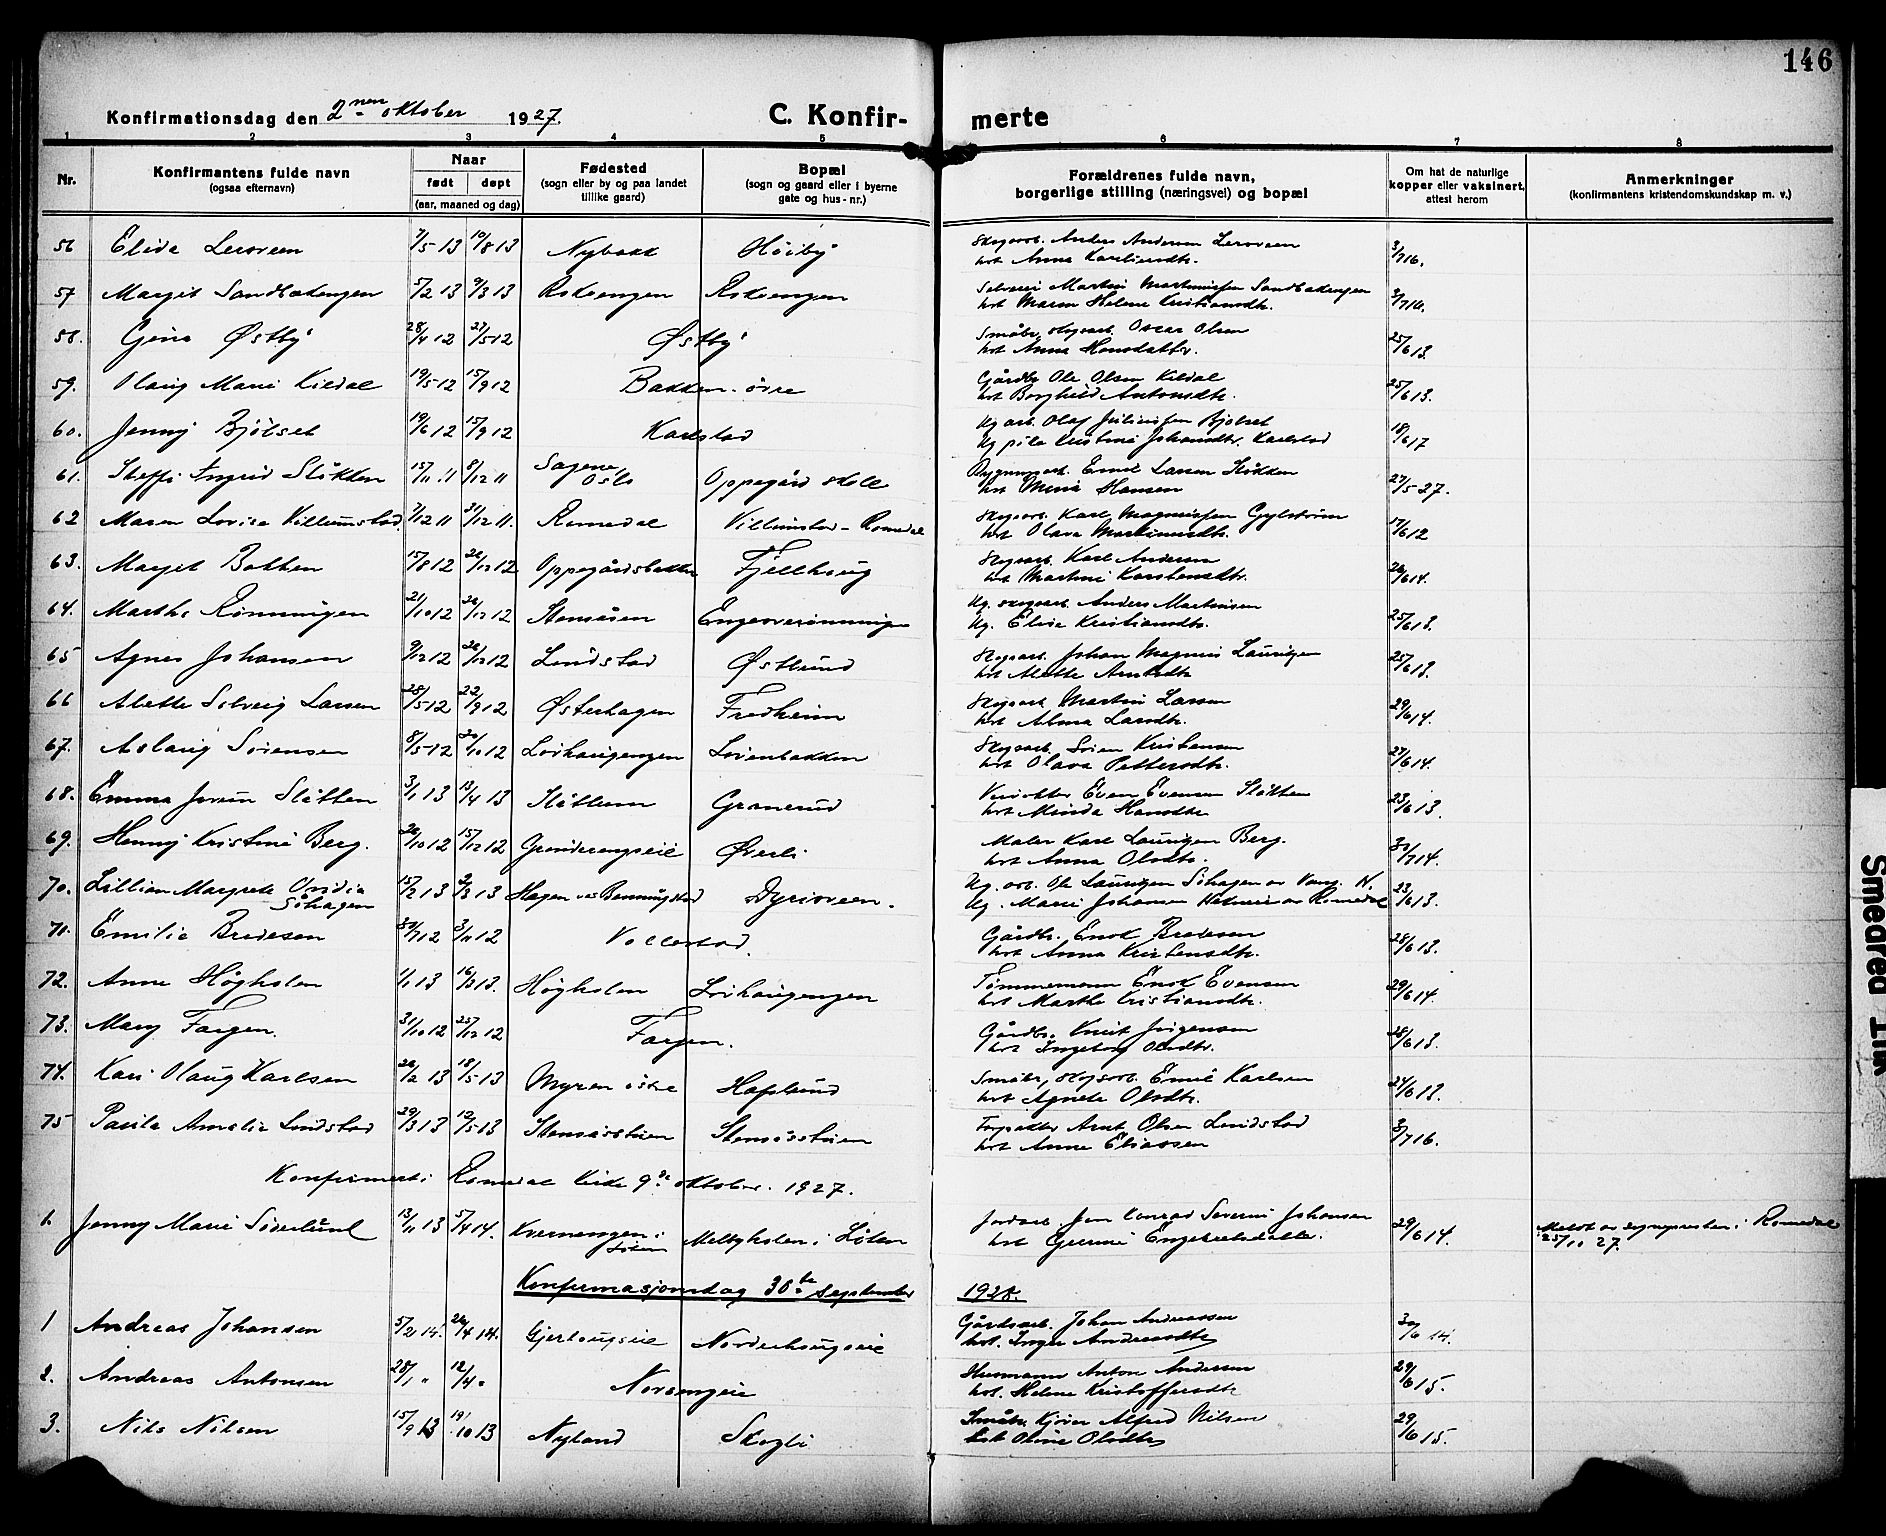 146
Konfirmationsdag den 2nen oktober 1927.
C. Konfir- merte
1 2 3 4 5 6 7 8
Nr.
Konfirmantens fulde navn
(ogsaa efternavn)
Naar
født døpt
(aar, maaned og dag)
Fødested
(sogn eller by og paa landet
tillike gaard)
Bopæl
(sogn og gaard eller i byerne
gate og hus-nr.)
Forældrenes fulde navn,
borgerlige stilling (næringsvei) og bopæl
Om hat de naturlige
kopper eller vaksinert,
attest herom
Anmerkninger
(konfirmantens kristendomskundskap m. v.)
56 Elida 7/5 13 10/8 13 Nybakk Höiby Skogarb. Anders Andersen 3/7 16.
hst Anna Karlsendtr.
57 Margit Sandbakengen 5/2 13 9/3 13 Selveier Martin Martinussen Sandbakengen 3/7 16.
hst Maren Helene Kristiansdtr.
58. Gina Østby 28/4 12 27/5 12 Østby Småbr, skogsarb. Oscar Olsen 25/6 13.
hst Anna Hansdatter.
59. Olaug Marie Kildal 19/5 12 15/9 12 Bakken övre Gårdbr Ole Olsen Kildal 25/6 13.
hst Borghild Antonsdtr.
60. Jenny Bjölset 19/6 12 15/9 12 Karlstad Ug arb. Olaf Juliussen Bjölset 18/6 17
Ug pike Kristine Johansdtr. Karlstad
61. Steffi Ingrid Slåkken 15/11 11 8/12 11 Sagene, Oslo Oppegård skole Bygningsarb. Emil Larsen 27/5 27.
hst Mina Hansen
62 Maren Lovise Killiumstad 7/12 11 31/12 11. Romedal Romedal Skogarb. Karl Magnussen Gylstrøm 17/6 12
hst Olava Martinusdtr.
63. Margit Bakken 15/8 12 26/12 12 Oppegårdsbakken Fjellhaug Skogsarb. Karl Andersen 26/6 14.
hst Martine Karstensdtr.
64. Marthe Rönningen 21/10 12 26/12 12 Stensåsen Ug. skogsarb. Anders Martinsen 25/6 13.
Ug. Elise Kristiansdtr.
65 Agnes Johansen 9/12 12 26/12 12 Lindstad Østlund Skogsarb. Johan Magnus Lauritzen 25/6 13.
hst Alette Arntsdtr
66 Alette Solveig Larsen 28/5 12 22/9 12 Østerhagen Fredheim Skogsarb. Martin Larsen 29/6 14.
hst Alma Larsdtr.
67. Aslaug Sörensen 8/5 12 20/10 12 Lövhaugengen Lövenbakken Skogsarb. Sören Kristensen 27/6 14.
hst Olava Pettersdtr.
68. Emma Jorun Slåtten 3/1 13 13/4 13 Slåttum Granerud Even Evensen Slåtten 23/6 13.
hst Minda Hansdtr
69. Henny Kristine Berg. 26/10 12 15/12 12 Grønderengseie Øverli Maler Karl Lauritzen Berg. 30/7 14.
hst Anna Olsdtr.
70. Lillian Margrete Ovidia 15/2 13 2/3 13 Hagen Ug. arb. Ole Lauritzen Söhagen av Vang. H. 23/6 13.
Söhagen Ug. Marie Johansen av Romedal
71. Emilie Bredesen 30/7 12 3/11 12 Vollestad. Gårdbr. Enok Bredesen 28/6 13.
hst Anna Kristensdtr.
72. Anne Högholen 1/1 13 16/3 13. Högholen Lövhaugengen Tømmermann Enok Evensen 29/6 14.
hst Marthe Kristiansdtr.
73. Mary Fargen. 31/10 12 25/12 12 Fargen. Gårdbr. Knut Jörgensen 28/6 13.
hst Ingeborg Olsdtr.
74. Kari Olaug Karlsen 26/2 13 18/5 13 Myren östre Haslund Småbr, skogsarb. Emil Karlsen 24/6 13.
hst Agnete Olsdtr.
75 Paula Amalie Lindstad 29/3 13 12/5 13 Stensåsstuen Stensåsstuen Forpakter Arnt Olsen Lindstad 3/7 16.
hst Anne Eliassen
Konfirmert i Romedal kirke 9de oktober. 1927.
1. Jenny Marie Söderlund 13/11 13 5/4 14. Kvernengen i Löten Meltyholen i Löten Jordarb. Jon Konrad Severin Johansen 29/6 14. Meldt av sognepresten i Romedal
hst Gurine Engebretsdatter. 25/10 27.
Konfirmasjonsdag 30te september 1928.
1 Andreas Johansen 5/2 14. 26/4 14. Gjerlaugseie Norderhaugseie Gårdsarb. Johan Andreassen 30/6 14.
hst. Inger Andreasdtr
2. Andreas Antonsen 28/1 " 12/4 " Norsengeie Husmann Anton Andersen 29/6 15.
hst. Helene Kristoffersdtr
3. Nils Nilsen 15/9 13 19/10 13 Nyland Skogli Småbr. Kjörer Alfred Nilsen 29/6 15.
hst Oline Olsdtr
Smeared Ink